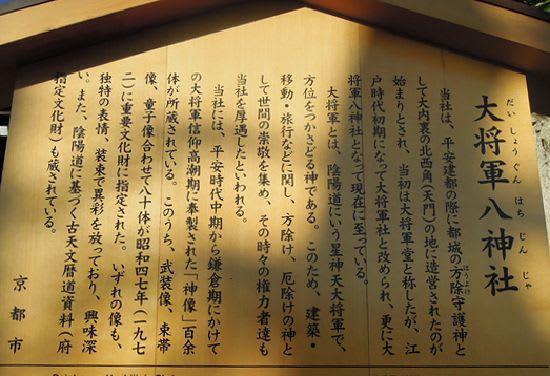 大将軍八神社
だいしょうぐんはちじんじゃ
当社は、平安建都の際に都城の方除守護神と
ほうよけ
して大内裏の北西角(天門)の地に造営されたのが
始まりとされ、当初は大将軍堂と称したが、江
戸時代初期になって大将軍社と改められ、更に大
将軍八神社となって現在に至っている。
大将軍とは、陰陽道にいう星神天大将軍で、
方位をつかさどる神である。このため、建築・
移動・旅行などに関し、方除け、厄除けの神と
して世間の崇敬を集め、その時々の権力者達も
当社を厚遇したといわれる。
当社には、平安時代中期から鎌倉期にかけて
の大将軍信仰高潮期に奉製された「神像」百余
体が所蔵されている。このうち、武装像、束帯
像、童子像合わせて八十体が昭和四七年(一九七
二)に重要文化財に指定された。いずれの像も、
独特の表情、装束で異彩を放っており、興味深
い。また、陰陽道に基づく古天文暦道資料(府
指定文化財)も蔵されている。
京都市